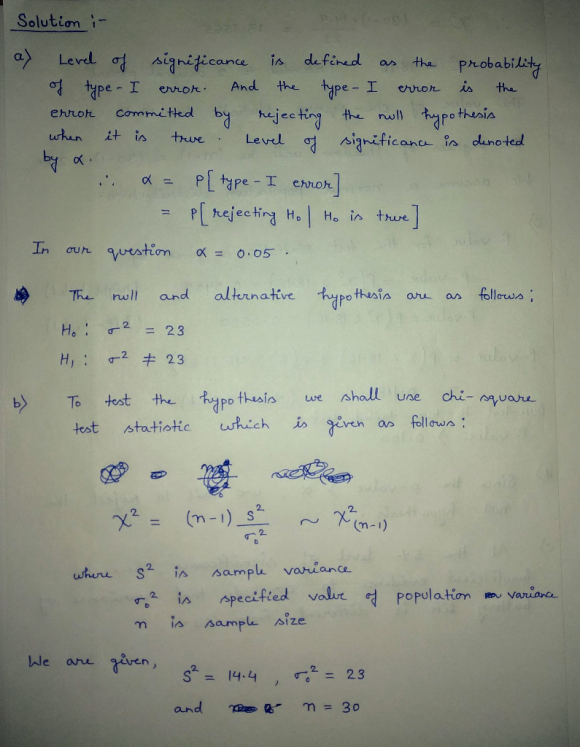 Solution :-
a) Level of significance is defined as the probability
of type-I error. And the type-I error is the
error committed by rejecting the null hypothesis
when it is true. Level of significance is denoted
by α.
∴ α = P[type-I error]
= P[rejecting H₀ | H₀ is true]
In our question α = 0.05.
The null and alternative hypothesis are as follows;
H₀ : σ² = 23
H₁ : σ² ≠ 23
b) To test the hypothesis we shall use chi-square
test statistic which is given as follows:
χ² = (n-1) S²/σ₀² ~ χ²(n-1)
where S² is sample variance
σ₀² is specified value of population variance
n is sample size
We are given,
S² = 14.4 , σ₀² = 23
and n = 30